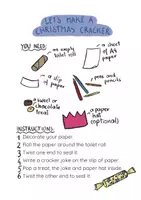 LET'S MAKE A
CHRISTMAS CRACKER
YOU NEED:
an empty
toilet roll
a sheet
of A4
paper
a slip
of paper
pens and
pencils
sweet or
chocolate
treat
a paper
hat
(optional)
INSTRUCTIONS:
1 Decorate your paper.
2 Roll the paper around the toilet roll.
3 Twist one end to seal it.
4 Write a cracker joke on the slip of paper.
5 Pop a treat, the joke and paper hat inside.
6 Twist the other end to seal it.